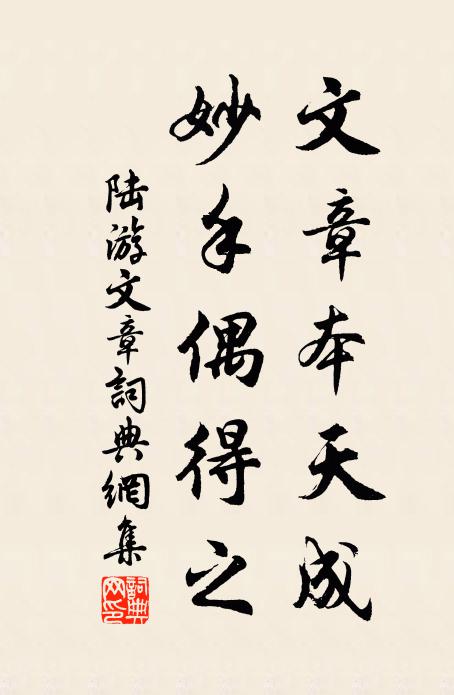 文章本天成
妙手偶得之
陆游文章詞典網集
詞典
网印